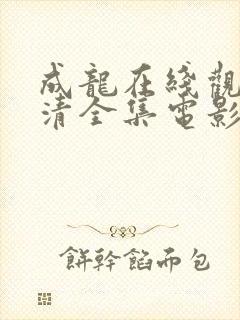 成龍在綫觀
清全集電影
餅幹餡而包